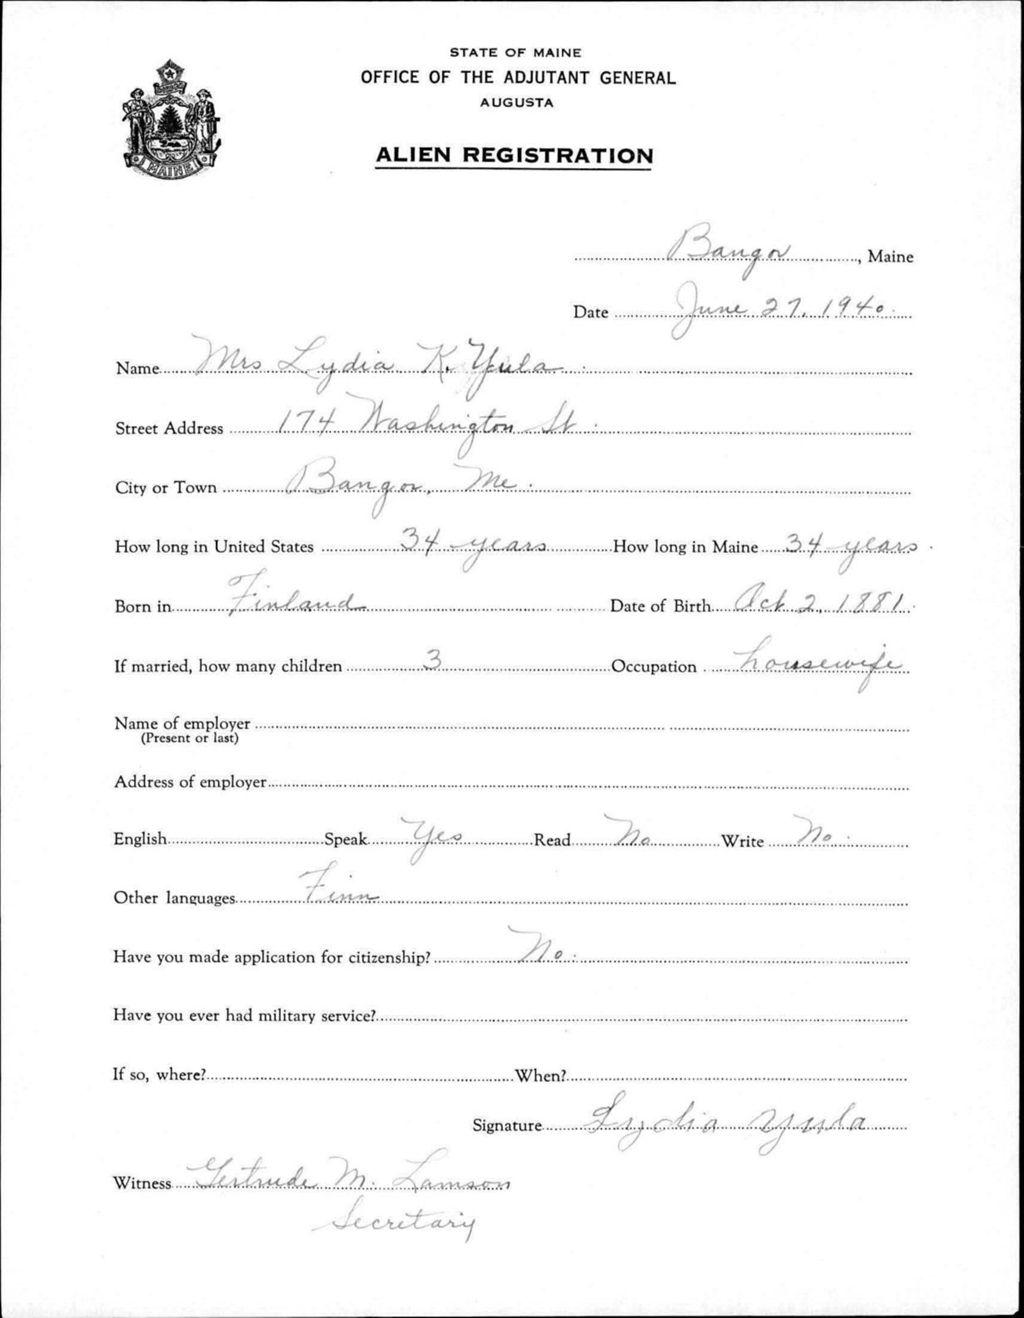 STATE OF MAINE
OFFICE OF THE ADJUTANT GENERAL
AUGUSTA
ALIEN REGISTRATION
MAINE
Bangor, Maine
Date June 27, 1940.
Name Mrs Lydia K. Yula
Street Address 174 Washington St.
City or Town Bangor, Me.
How long in United States 34 years How long in Maine 34 years.
Born in Finland Date of Birth Oct 2, 1881.
If married, how many children 3 Occupation housewife
Name of employer
(Present or last)
Address of employer
English Speak Yes Read No Write No.
Other languages Finn
Have you made application for citizenship? No.
Have you ever had military service?
If so, where? When?
Signature Lydia Yula
Witness Gertrude M. Lamson
Secretary